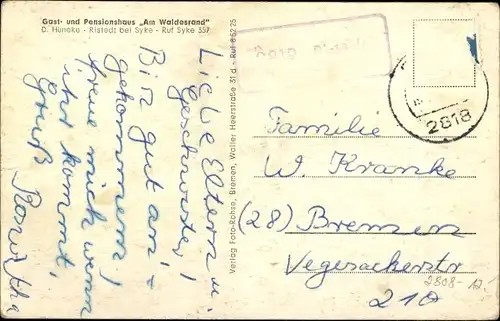 Gast- und Pensionshaus „Am Waldesrand"
D. Huneke - Ristedt bei Syke - Ruf Syke 357
Liebe Eltern u.
Geschwister!
Bin gut an-
gekommen!
freue mich wenn
ihr kommt.
Gruß
Verlag Foto-Rohse, Bremen, Waller Heerstraße 31 d - Ruf 8 62 25
2818
Familie
W. Kranke
(28) Bremen
Vegesackerstr
210
2808-